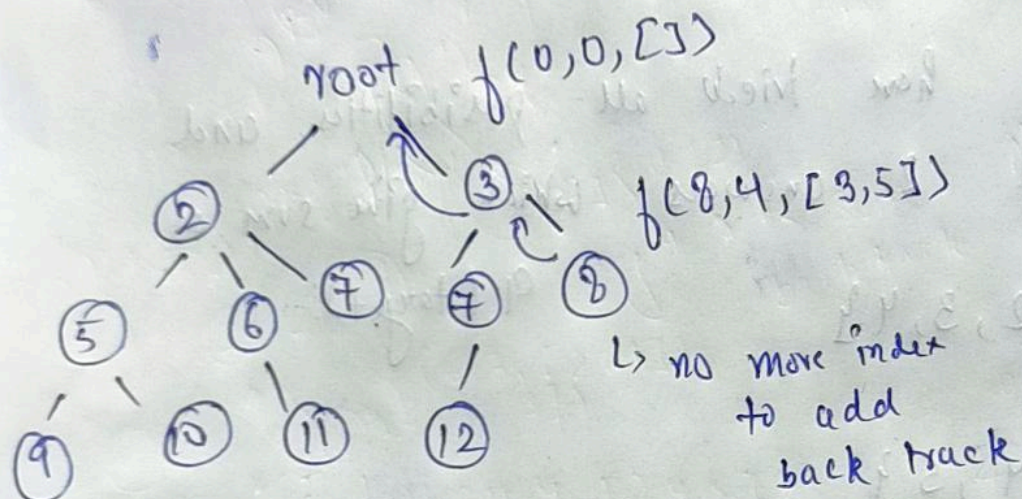 root f(0,0,[])
2 3 f(8,4,[3,5])
5 6 7 7 8
↳ no more index
to add
back track
9 10 11 12